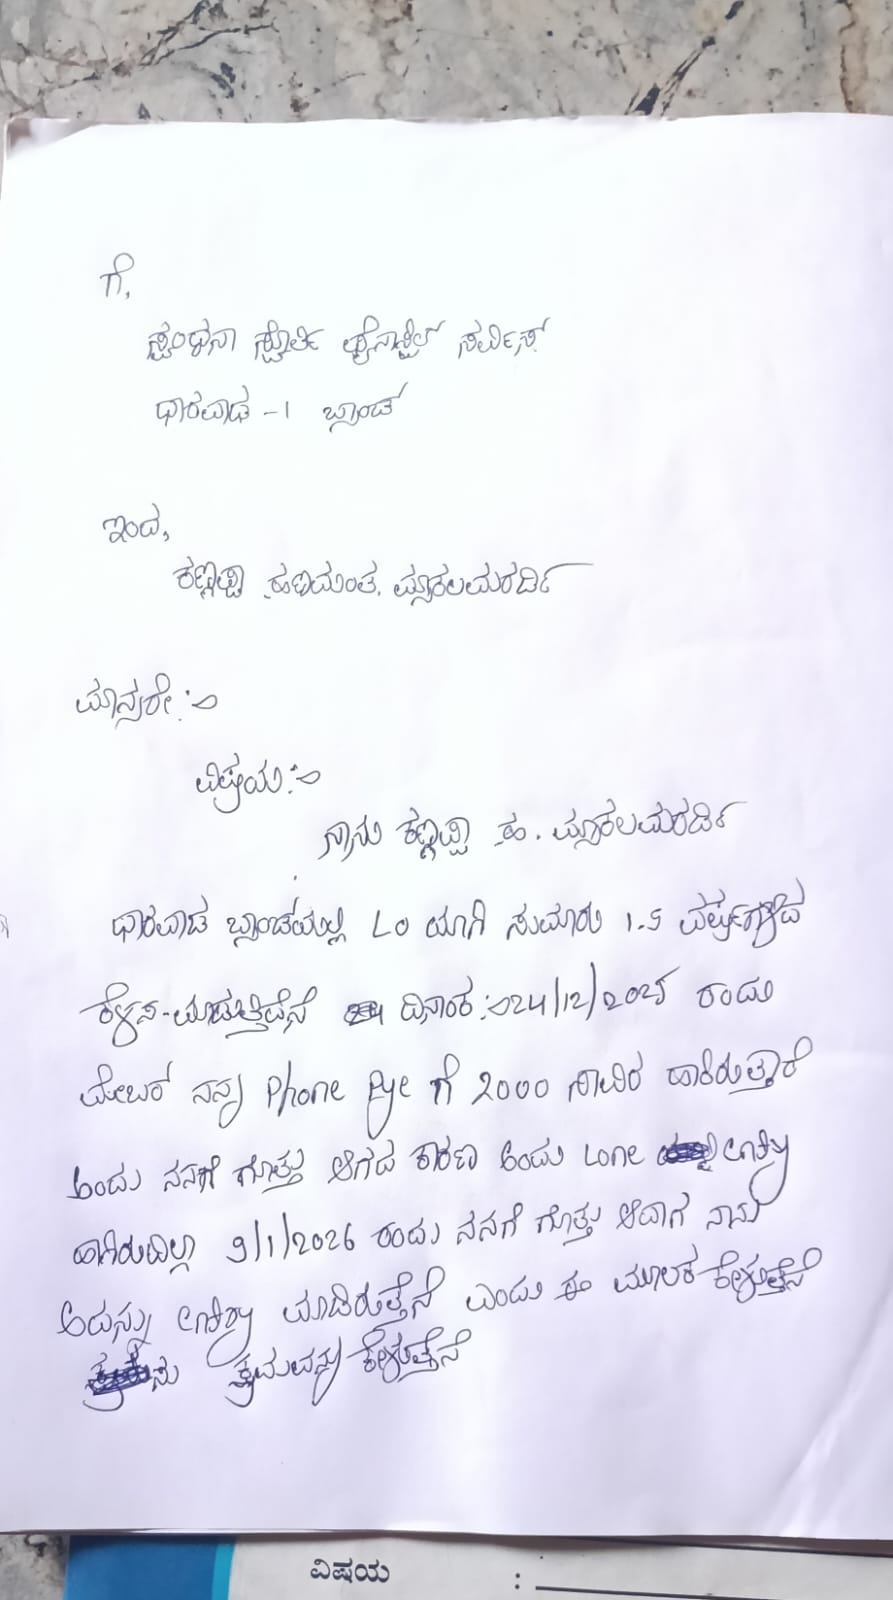 ಗೆ,
ಸ್ಪಂಧನಾ ಸ್ಪೂರ್ತಿ ಫೈನಾನ್ಸಿಲ್ ಸರ್ವಿಸ್
ಧಾರವಾಡ -1 ಬ್ರಾಂಚ್
ಇಂದ,
ಕಣ್ಣೆಪ್ಪಾ ಹಣಮಂತ.
ಮಾನ್ಯರೇ :-
ವಿಷಯ :-
ನಾನು ಕಣ್ಣೆಪ್ಪಾ ಹ.
ಧಾರವಾಡ ಬ್ರಾಂಚಯಲ್ಲಿ LO ಯಾಗಿ ಸುಮಾರು 1.5 ವರ್ಷಗಳಿಂದ
ಕೆಳಸ ಮಾಡುತ್ತಿದ್ದೇನೆ ದಿನಾಂಕ :- 24/12/2025 ರಂದು
ಮೇಂಬರ್ ನನ್ನ Phone Pye ಗೆ 2000 ಸಾವಿರ ಹಾಕಿರುತ್ತಾರೆ
ಅಂದು ನನಗೆ ಗೊತ್ತು ಆಗದ ಕಾರಣ ಅಂದು Lone ಎಂಟ್ರಿ
ಹಾಗಿರುವದಿಲ್ಲಾ 9/1/2026 ರಂದು ನನಗೆ ಗೊತ್ತು ಆದಾಗ ನಾನು
ಅದನ್ನು ಎಂಟ್ರಿ ಮಾಡಿರುತ್ತೇನೆ ಎಂದು ಈ ಮೂಲಕ ಕೇಳುತ್ತೇನೆ
ಕ್ಷಮವನ್ನು ಕೇಳುತ್ತೇನೆ
ವಿಷಯ :